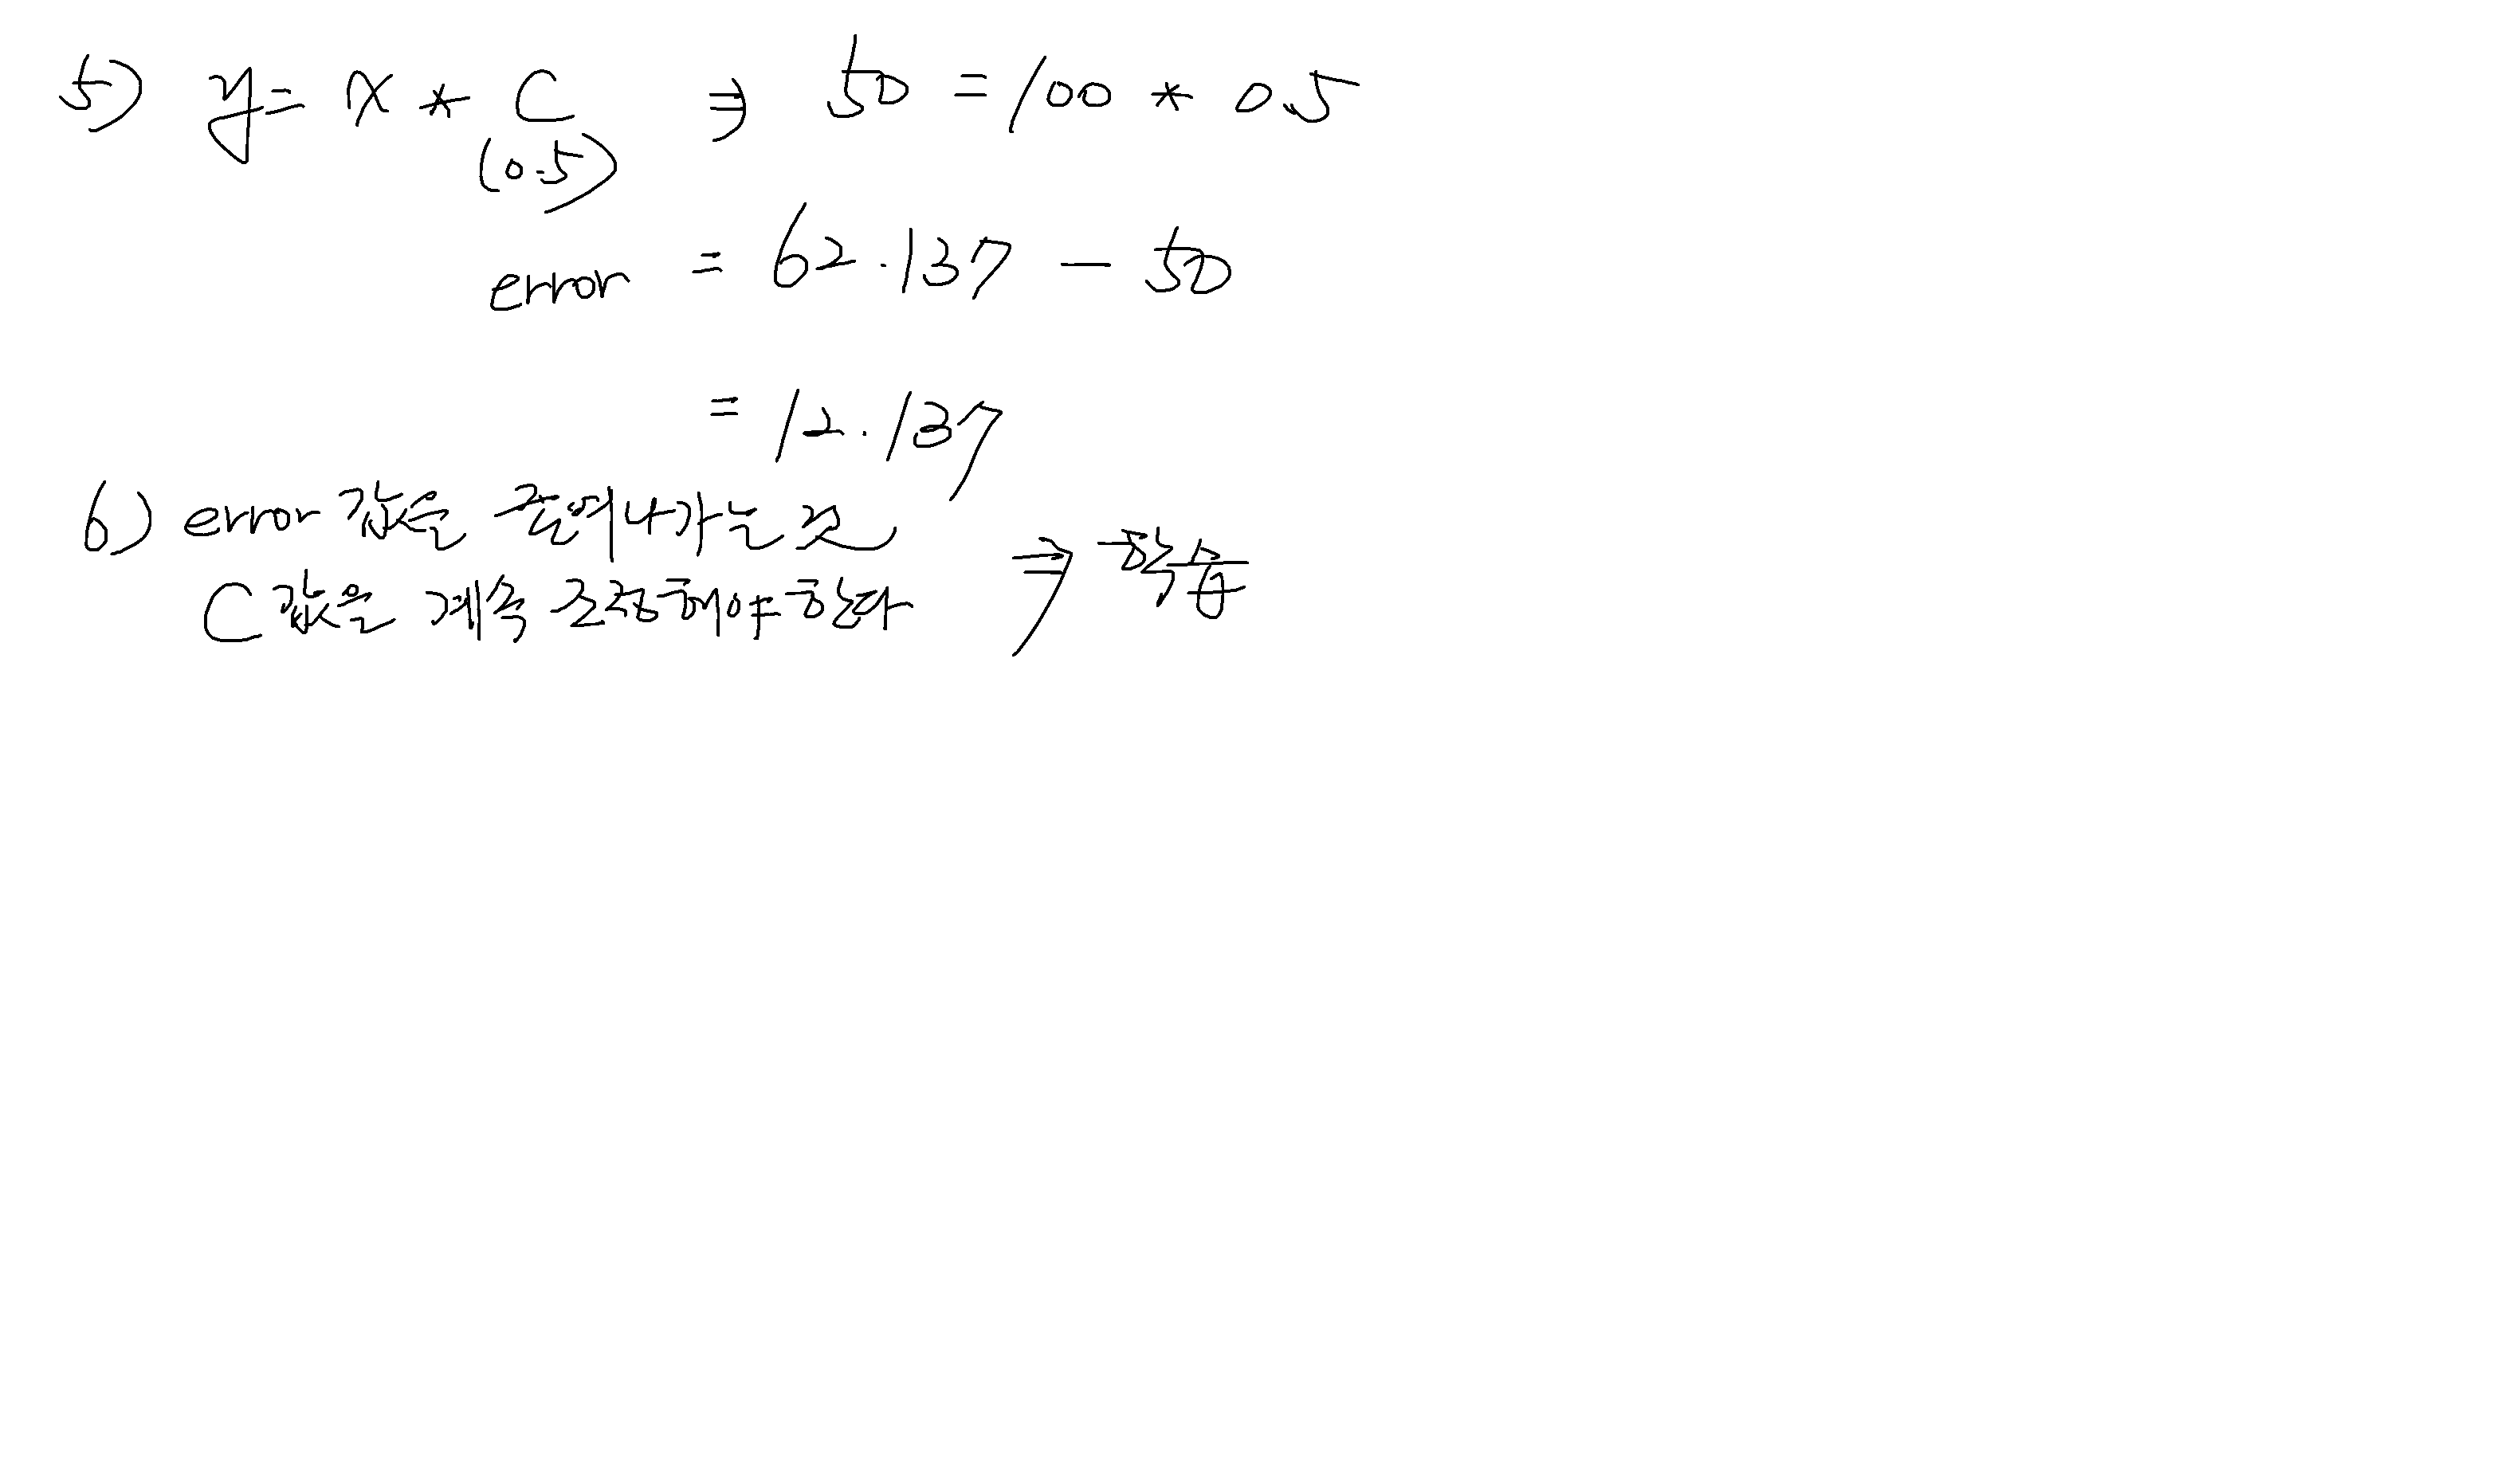 5) y = x * C ⇒ 50 = 100 * 0.5
(0.5)
error = 62.137 - 50
= 12.137
6) error 값을 줄여나가는 것
C값을 계속 조정해야 한다 ⇒ 학습